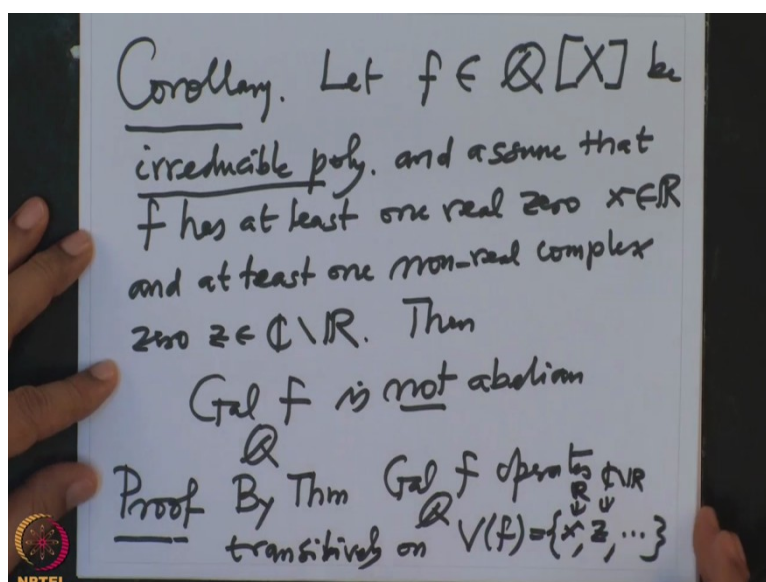 Corollary. Let f ∈ ℚ[X] be
irreducible poly. and assume that
f has at least one real zero x∈ℝ
and at least one non-real complex
zero z ∈ ℂ\ℝ. Then
Gal_ℚ f is not abelian
Proof By Thm Gal_ℚ f operates
transitively on V(f) = {x, z, ...}
ℝ ℂ\ℝ
NPTEL